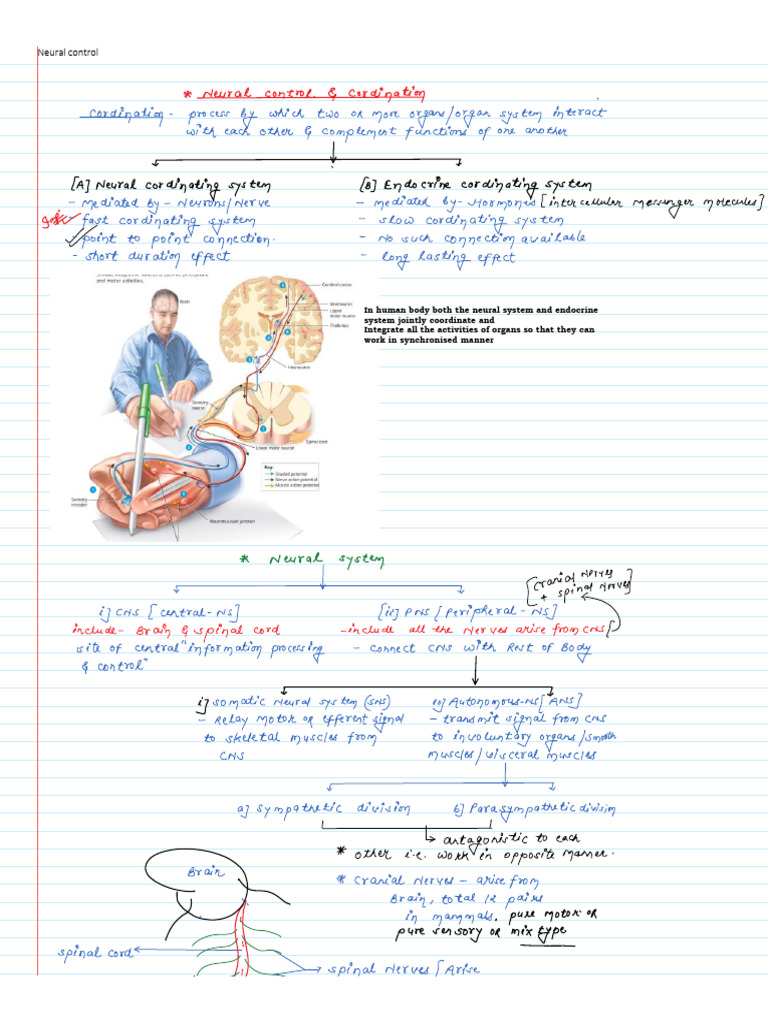 Neural control
* Neural control & Cordination
Cordination - process by which two or more organs/organ system interact
with each other & complement functions of one another
[A] Neural cordinating system
- Mediated by - Neurons/Nerve
- fast cordinating system
- point to point connection.
- short duration effect
[B] Endocrine cordinating system
- mediated by - Hormones [intercellular messenger molecules]
- slow cordinating system
- No such connection available
- long lasting effect
and motor activities.
Brain
Cerebral cortex
Interneuron
Upper
motor neuron
Thalamus
Interneuron
Sensory
neuron
Spinal cord
Lower motor neuron
Key:
Graded potential
Nerve action potential
Muscle action potential
Sensory
receptor
Neuromuscular junction
In human body both the neural system and endocrine
system jointly coordinate and
Integrate all the activities of organs so that they can
work in synchronised manner
* Neural system
i] CNS [central-NS]
include - Brain & spinal cord
site of central "information processing
& control"
[ii] PNS [Peripheral-NS]
- include all the Nerves arise from CNS
[cranial nerves
+ spinal nerves]
- connect CNS with Rest of Body
i] Somatic Neural system (SNS)
- Relay motor or efferent signal
to skeletal muscles from
CNS
ii] Autonomous-NS [ANS]
- transmit signal from CNS
to involuntary organs/smooth
muscles/visceral muscles
a] Sympathetic division
b] Parasympathetic division
antagonistic to each
* other i.e. work in opposite manner.
* Cranial Nerves - arise from
Brain, total 12 pairs
in mammals. pure motor or
pure sensory or mix type
Brain
spinal cord
spinal Nerves [Arise